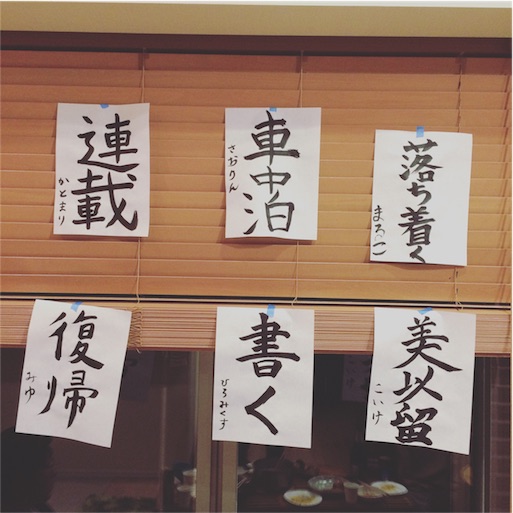 連載
かとまり
車中泊
さおりん
落ち着く
まるこ
復帰
みゆ
書く
ひろみくす
美以留
こいけ